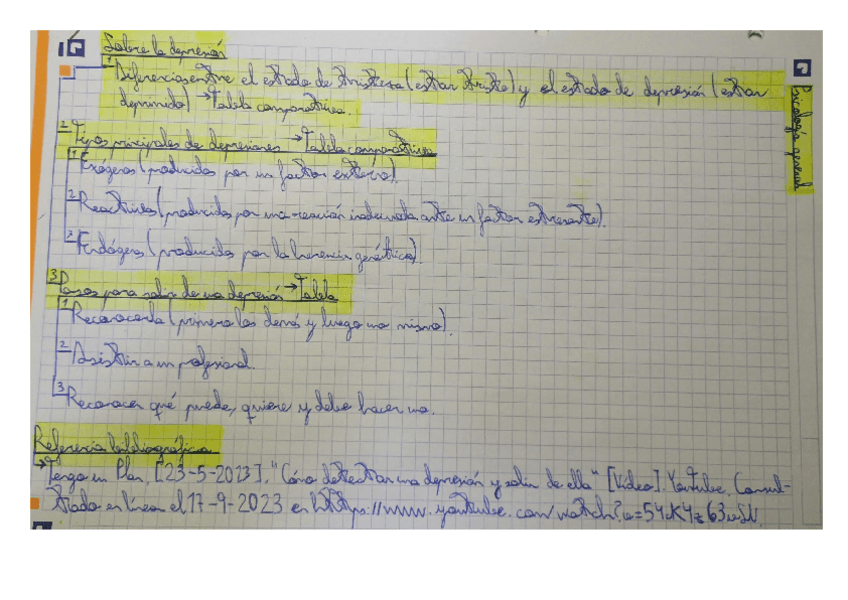 Sobre la depresión
1 Diferencias entre el estado de tristeza (estar triste) y el estado de depresión (estar
deprimido) → Tabla comparativa.
2 Tipos principales de depresiones → Tabla comparativa
1 Exógenas (producidas por un factor externo).
2 Reactivas (producidas por una reacción inadecuada ante un factor estresante).
3 Endógenas (producidas por la herencia genética).
3 Pasos para salir de una depresión → Tabla
1 Reconocerla (primero los demás y luego uno mismo).
2 Asistir a un profesional.
3 Reconocer qué puede, quiere y debe hacer uno.
Referencia bibliográfica
→ Tengo un Plan. [23-5-2023]. "Cómo detectar una depresión y salir de ella" [Vídeo]. Youtube. Consul-
tado en línea el 17-9-2023 en https://www.youtube.com/watch?
Psicología general